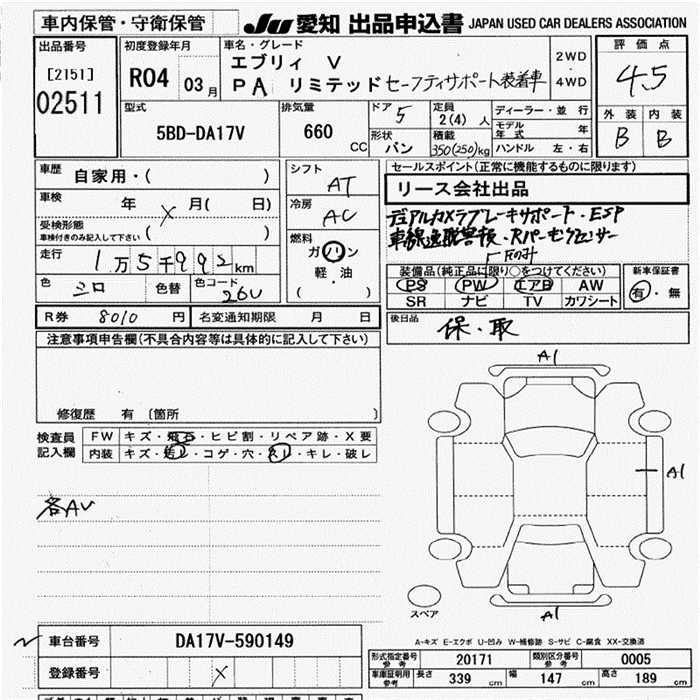 車内保管・守衛保管 JU 愛知 出品申込書 JAPAN USED CAR DEALERS ASSOCIATION
出品番号 初度登録年月 車名・グレード 評価点
[2151] R04 03月 エブリィ V 2WD・4WD 4.5
02511 PA リミテッド セーフティサポート装着車
外装 内装
B B
型式 排気量 ドア 5 定員 2(4)人 ディーラー・並行
5BD-DA17V 660 CC 形状 バン 積載 350(250)kg モデル年式 年
ハンドル 左・右
車歴 自家用・( ) シフト AT セールスポイント(正常に機能するものに限ります)
車検 年 X 月( 日) 冷房 AC リース会社出品
受検形態 デュアルカメラブレーキサポート・ESP
車検付きのみ記入して下さい ( ) 燃料 車線逸脱警報・Rパーキングセンサー
走行 1万5千992km ガソリン Fのみ
軽・油
( )
色 シロ 色替 色コード 26U
装備品(純正品に限り○をつけてください) 新車保証書
PS PW エアB AW 有・無
SR ナビ TV カワシート
R券 8010 円 名変通知期限 月 日 後日品 保・取
注意事項申告欄(不具合内容等は具体的に記入して下さい)
修復歴 有 〔箇所 〕
検査員記入欄 FW キズ・飛石・ヒビ割・リペア跡・X要
内装 キズ・汚レ・コゲ・穴・スレ・キレ・破レ
各AU
A1
A1
A1
スペア
A-キズ E-エクボ U-凹み W-補修跡 S-サビ C-腐食 XX-交換済
車台番号 DA17V-590149
登録番号 X
形式指定番号 参考 20171 類別区分番号 参考 0005
車庫証明用 参考 長さ 339 cm 幅 147 cm 高さ 189 cm